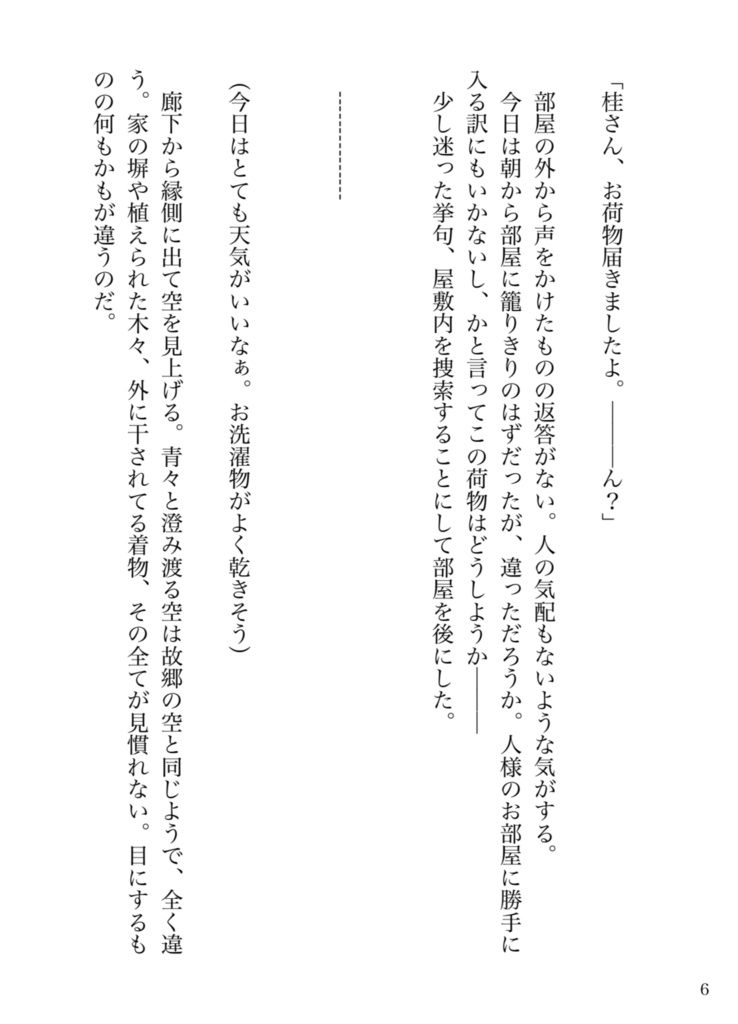 「桂さん、お荷物届きましたよ。―――ん？」
部屋の外から声をかけたものの返答がない。人の気配もないような気がする。
今日は朝から部屋に籠りきりのはずだったが、違っただろうか。人様のお部屋に勝手に
入る訳にもいかないし、かと言ってこの荷物はどうしようか―――
少し迷った挙句、屋敷内を捜索することにして部屋を後にした。
-----------
(今日はとても天気がいいなぁ。お洗濯物がよく乾きそう)
廊下から縁側に出て空を見上げる。青々と澄み渡る空は故郷の空と同じようで、全く違
う。家の塀や植えられた木々、外に干されてる着物、その全てが見慣れない。目にするも
のの何もかもが違うのだ。
6